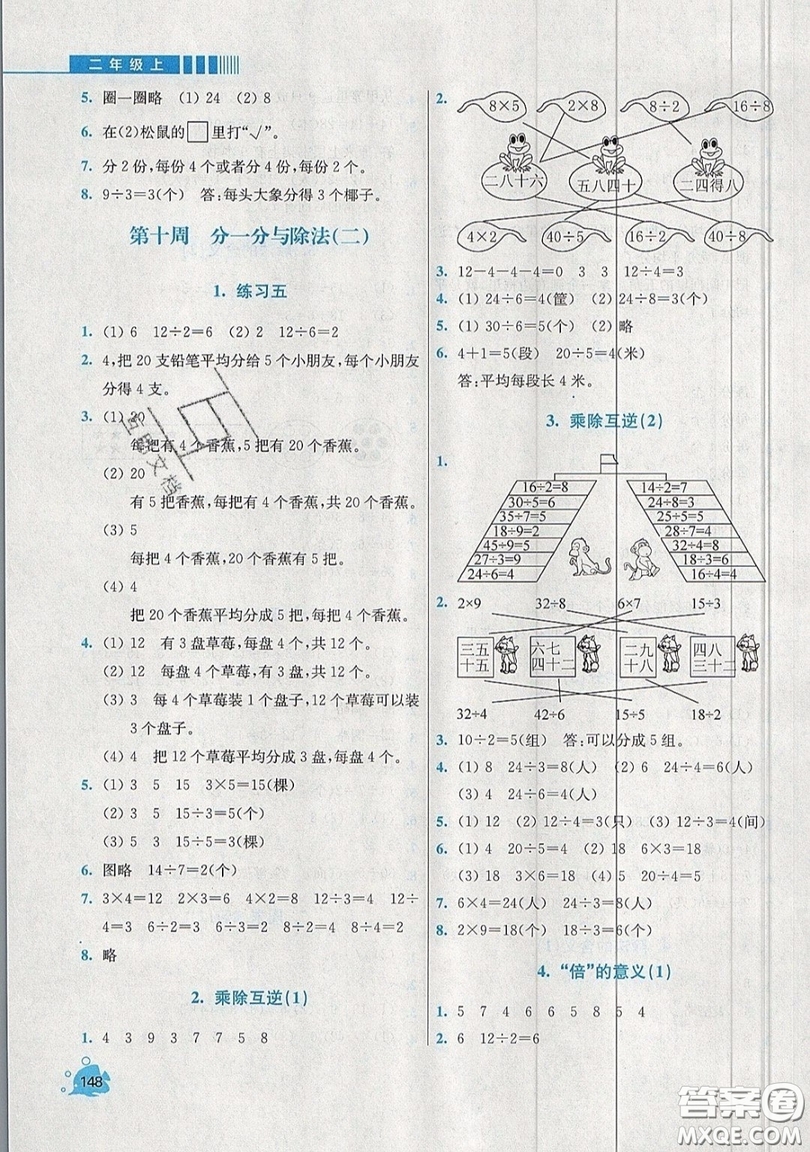 二年级上
5. 圈一圈略 (1) 24 (2) 8
6. 在(2)松鼠的□里打“√”。
7. 分2份,每份4个或者分4份,每份2个。
8. 9÷3=3(个) 答:每头大象分得3个椰子。
第十周 分一分与除法(二)
1. 练习五
1. (1) 6 12÷2=6 (2) 2 12÷6=2
2. 4,把20支铅笔平均分给5个小朋友,每个小朋友
分得4支。
3. (1) 20
每把有4个香蕉,5把有20个香蕉。
(2) 20
有5把香蕉,每把有4个香蕉,共20个香蕉。
(3) 5
每把4个香蕉,20个香蕉有5把。
(4) 4
把20个香蕉平均分成5把,每把有4个香蕉。
4. (1) 12 有3盘草莓,每盘有4个,共12个。
(2) 12 每盘4个草莓,有3盘,共12个。
(3) 3 每4个草莓装1个盘子,12个草莓可以装
3个盘子。
(4) 4 把12个草莓平均分成3盘,每盘有4个。
5. (1) 3 5 15 3×5=15(棵)
(2) 3 5 15÷3=5(个)
(3) 5 3 15÷5=3(棵)
6. 图略 14÷7=2(个)
7. 3×4=12 2×3=6 4×2=8 12÷3=4 12÷
4=3 6÷2=3 6÷3=2 8÷4=2 8÷2=4
8. 略
2. 乘除互逆(1)
1. 4 3 9 3 7 7 5 8
148
2. 8×5 2×8 8÷2 16÷8
二八十六 五八四十 二四得八
4×2 40÷5 16÷2 40÷8
3. 12-4-4-4=0 3 3 12÷4=3
4. (1) 24÷6=4(筐) (2) 24÷8=3(个)
5. (1) 30÷6=5(个) (2) 略
6. 4+1=5(段) 20÷5=4(米)
答:平均每段长4米。
3. 乘除互逆(2)
1.
16÷2=8 14÷2=7
30÷5=6 24÷8=3
35÷7=5 25÷5=5
18÷9=2 28÷7=4
45÷9=5 32÷8=4
27÷3=9 18÷6=3
24÷6=4 16÷4=4
2. 2×9 32÷8 6×7 15÷3
三五 六七 二九 四八
十五 四十二 十八 三十二
32÷4 42÷6 15÷5 18÷2
3. 10÷2=5(组) 答:可以分成5组。
4. (1) 8 24÷3=8(人) (2) 6 24÷4=6(人)
(3) 4 24÷6=4(人)
5. (1) 12 (2) 12÷4=3(只) (3) 12÷3=4(间)
6. (1) 4 20÷5=4 (2) 18 6×3=18
(3) 5 20÷4=5 (4) 4 16÷4=4
7. 6×4=24(个) 24÷3=8(个)
8. 2×9=18(个) 18÷3=6(个)
4. “倍”的意义(1)
1. 5 7 4 6 6 5 8 5 4
2. 6 12÷2=6
答案圈
MXQE.COM